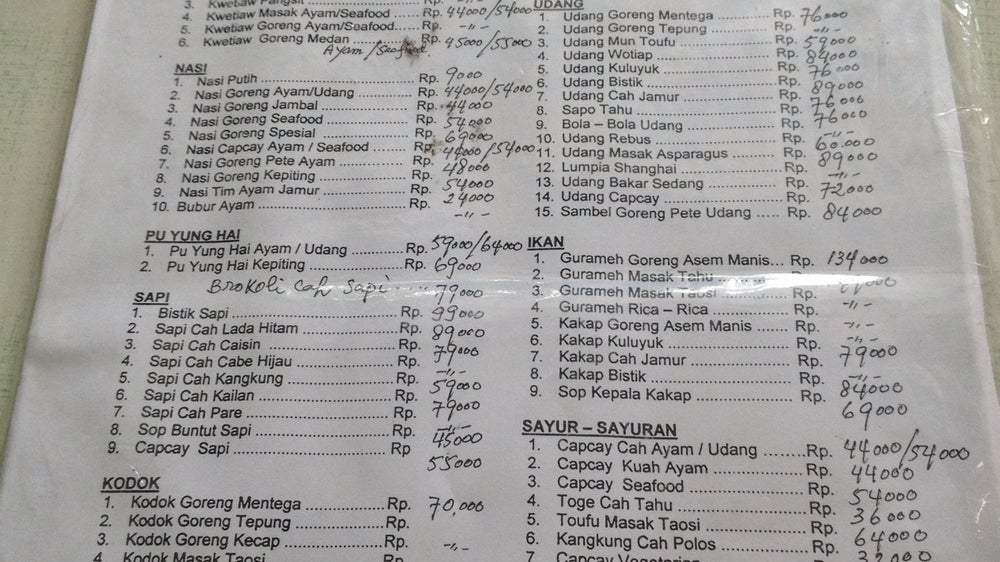 3. Kwetiaw Pangsit
4. Kwetiaw Masak Ayam/Seafood ..... Rp. 44000/54000
5. Kwetiaw Goreng Ayam/Seafood..... Rp. -〃-
6. Kwetiaw Goreng Medan ..... Rp. 45000/55000
Ayam/Seafood
NASI
1. Nasi Putih ..... Rp. 9000
2. Nasi Goreng Ayam/Udang ..... Rp. 44000/54000
3. Nasi Goreng Jambal ..... Rp. 44000
4. Nasi Goreng Seafood ..... Rp. 54000
5. Nasi Goreng Spesial ..... Rp. 69000
6. Nasi Capcay Ayam / Seafood ..... Rp. 44000/54000
7. Nasi Goreng Pete Ayam ..... Rp. 48000
8. Nasi Goreng Kepiting ..... Rp. 54000
9. Nasi Tim Ayam Jamur ..... Rp. 24000
10. Bubur Ayam ..... Rp. -〃-
PU YUNG HAI
1. Pu Yung Hai Ayam / Udang ..... Rp. 59000/64000
2. Pu Yung Hai Kepiting ..... Rp. 69000
Brokoli cah Sapi ..... 79000
SAPI
1. Bistik Sapi ..... Rp. 99000
2. Sapi Cah Lada Hitam ..... Rp. 89000
3. Sapi Cah Caisin ..... Rp. 79000
4. Sapi Cah Cabe Hijau ..... Rp. -〃-
5. Sapi Cah Kangkung ..... Rp. 59000
6. Sapi Cah Kailan ..... Rp. 79000
7. Sapi Cah Pare ..... Rp. -〃-
8. Sop Buntut Sapi ..... Rp. 45000
9. Capcay Sapi ..... Rp 55000
KODOK
1. Kodok Goreng Mentega ..... Rp. 70,000
2. Kodok Goreng Tepung ..... Rp.
3. Kodok Goreng Kecap ..... Rp. -〃-
4. Kodok Masak Taosi ..... Rp.
UDANG
1. Udang Goreng Mentega ..... Rp. 76000
2. Udang Goreng Tepung ..... Rp. -〃-
3. Udang Mun Toufu ..... Rp. 59000
4. Udang Wotiap ..... Rp. 84000
5. Udang Kuluyuk ..... Rp. 76000
6. Udang Bistik ..... Rp. 89000
7. Udang Cah Jamur ..... Rp. 76000
8. Sapo Tahu ..... Rp. 76000
9. Bola – Bola Udang ..... Rp. -〃-
10. Udang Rebus ..... Rp. 60.000
11. Udang Masak Asparagus ..... Rp. 89000
12. Lumpia Shanghai ..... Rp. -〃-
13. Udang Bakar Sedang ..... Rp. 72000
14. Udang Capcay ..... Rp.
15. Sambel Goreng Pete Udang ..... Rp. 84000
IKAN
1. Gurameh Goreng Asem Manis... Rp. 134000
2. Gurameh Masak Tahu
3. Gurameh Masak Taosi
4. Gurameh Rica – Rica ..... Rp. -〃-
5. Kakap Goreng Asem Manis ..... Rp. -〃-
6. Kakap Kuluyuk ..... Rp. 79000
7. Kakap Cah Jamur ..... Rp. -〃-
8. Kakap Bistik ..... Rp. 84000
9. Sop Kepala Kakap ..... Rp. 69000
SAYUR – SAYURAN
1. Capcay Cah Ayam / Udang ..... Rp. 44000/54000
2. Capcay Kuah Ayam ..... Rp. 44000
3. Capcay Seafood ..... Rp. 54000
4. Toge Cah Tahu ..... Rp. 36000
5. Toufu Masak Taosi ..... Rp. 64000
6. Kangkung Cah Polos ..... Rp. 32000
7. Capcay Vegetarian ..... Rp.